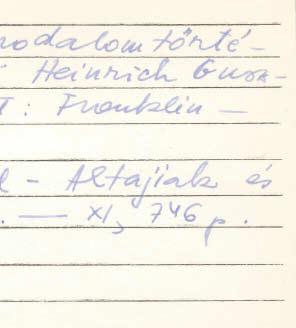 rodalom törté-
Heinrich Gusz-
T : Franklin —
l - Altajiak és
. — XI, 746 p.